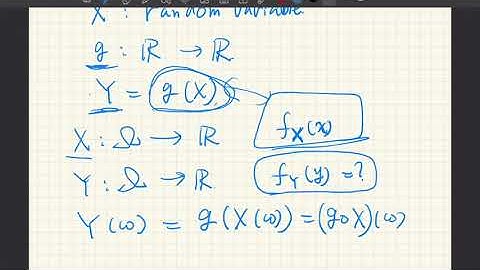 X : random variable
g : ℝ → ℝ
Y = g(X)
f_X(x)
X : Ω → ℝ
f_Y(y) = ?
Y : Ω → ℝ
Y(ω) = g(X(ω)) = (g∘X)(ω)